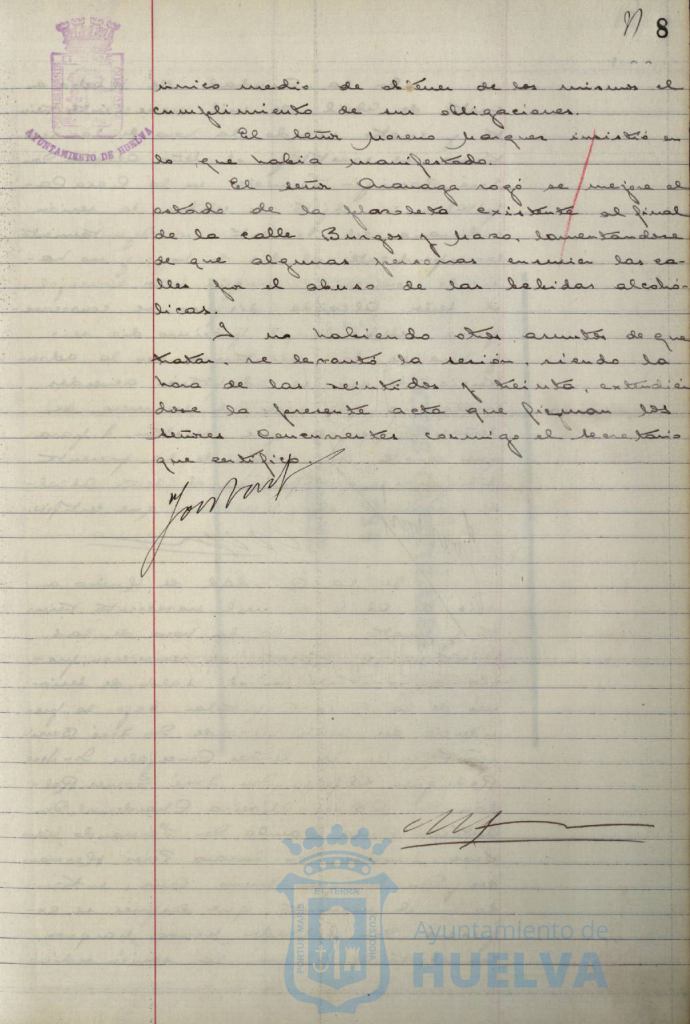 8
AYUNTAMIENTO DE HUELVA
único medio de obtener de los mismos el
cumplimiento de sus obligaciones.
El señor Moreno Marquez insistió en
lo que había manifestado.
El señor Aranaga rogó se mejore el
estado de la plazoleta existente al final
de la calle Burgos y Mazo, lamentandose
de que algunas personas ensucien las ca-
lles por el abuso de las bebidas alcohó-
licas.
Y no habiendo otros asuntos de que
tratar, se levantó la sesión, siendo la
hora de las veintidos y treinta, extendién
dose la presente acta que firman los
señores concurrentes conmigo el secretario
que certifico.
EL TERRA
PORTUS MARIS
CUSTODIA
Ayuntamiento de
HUELVA